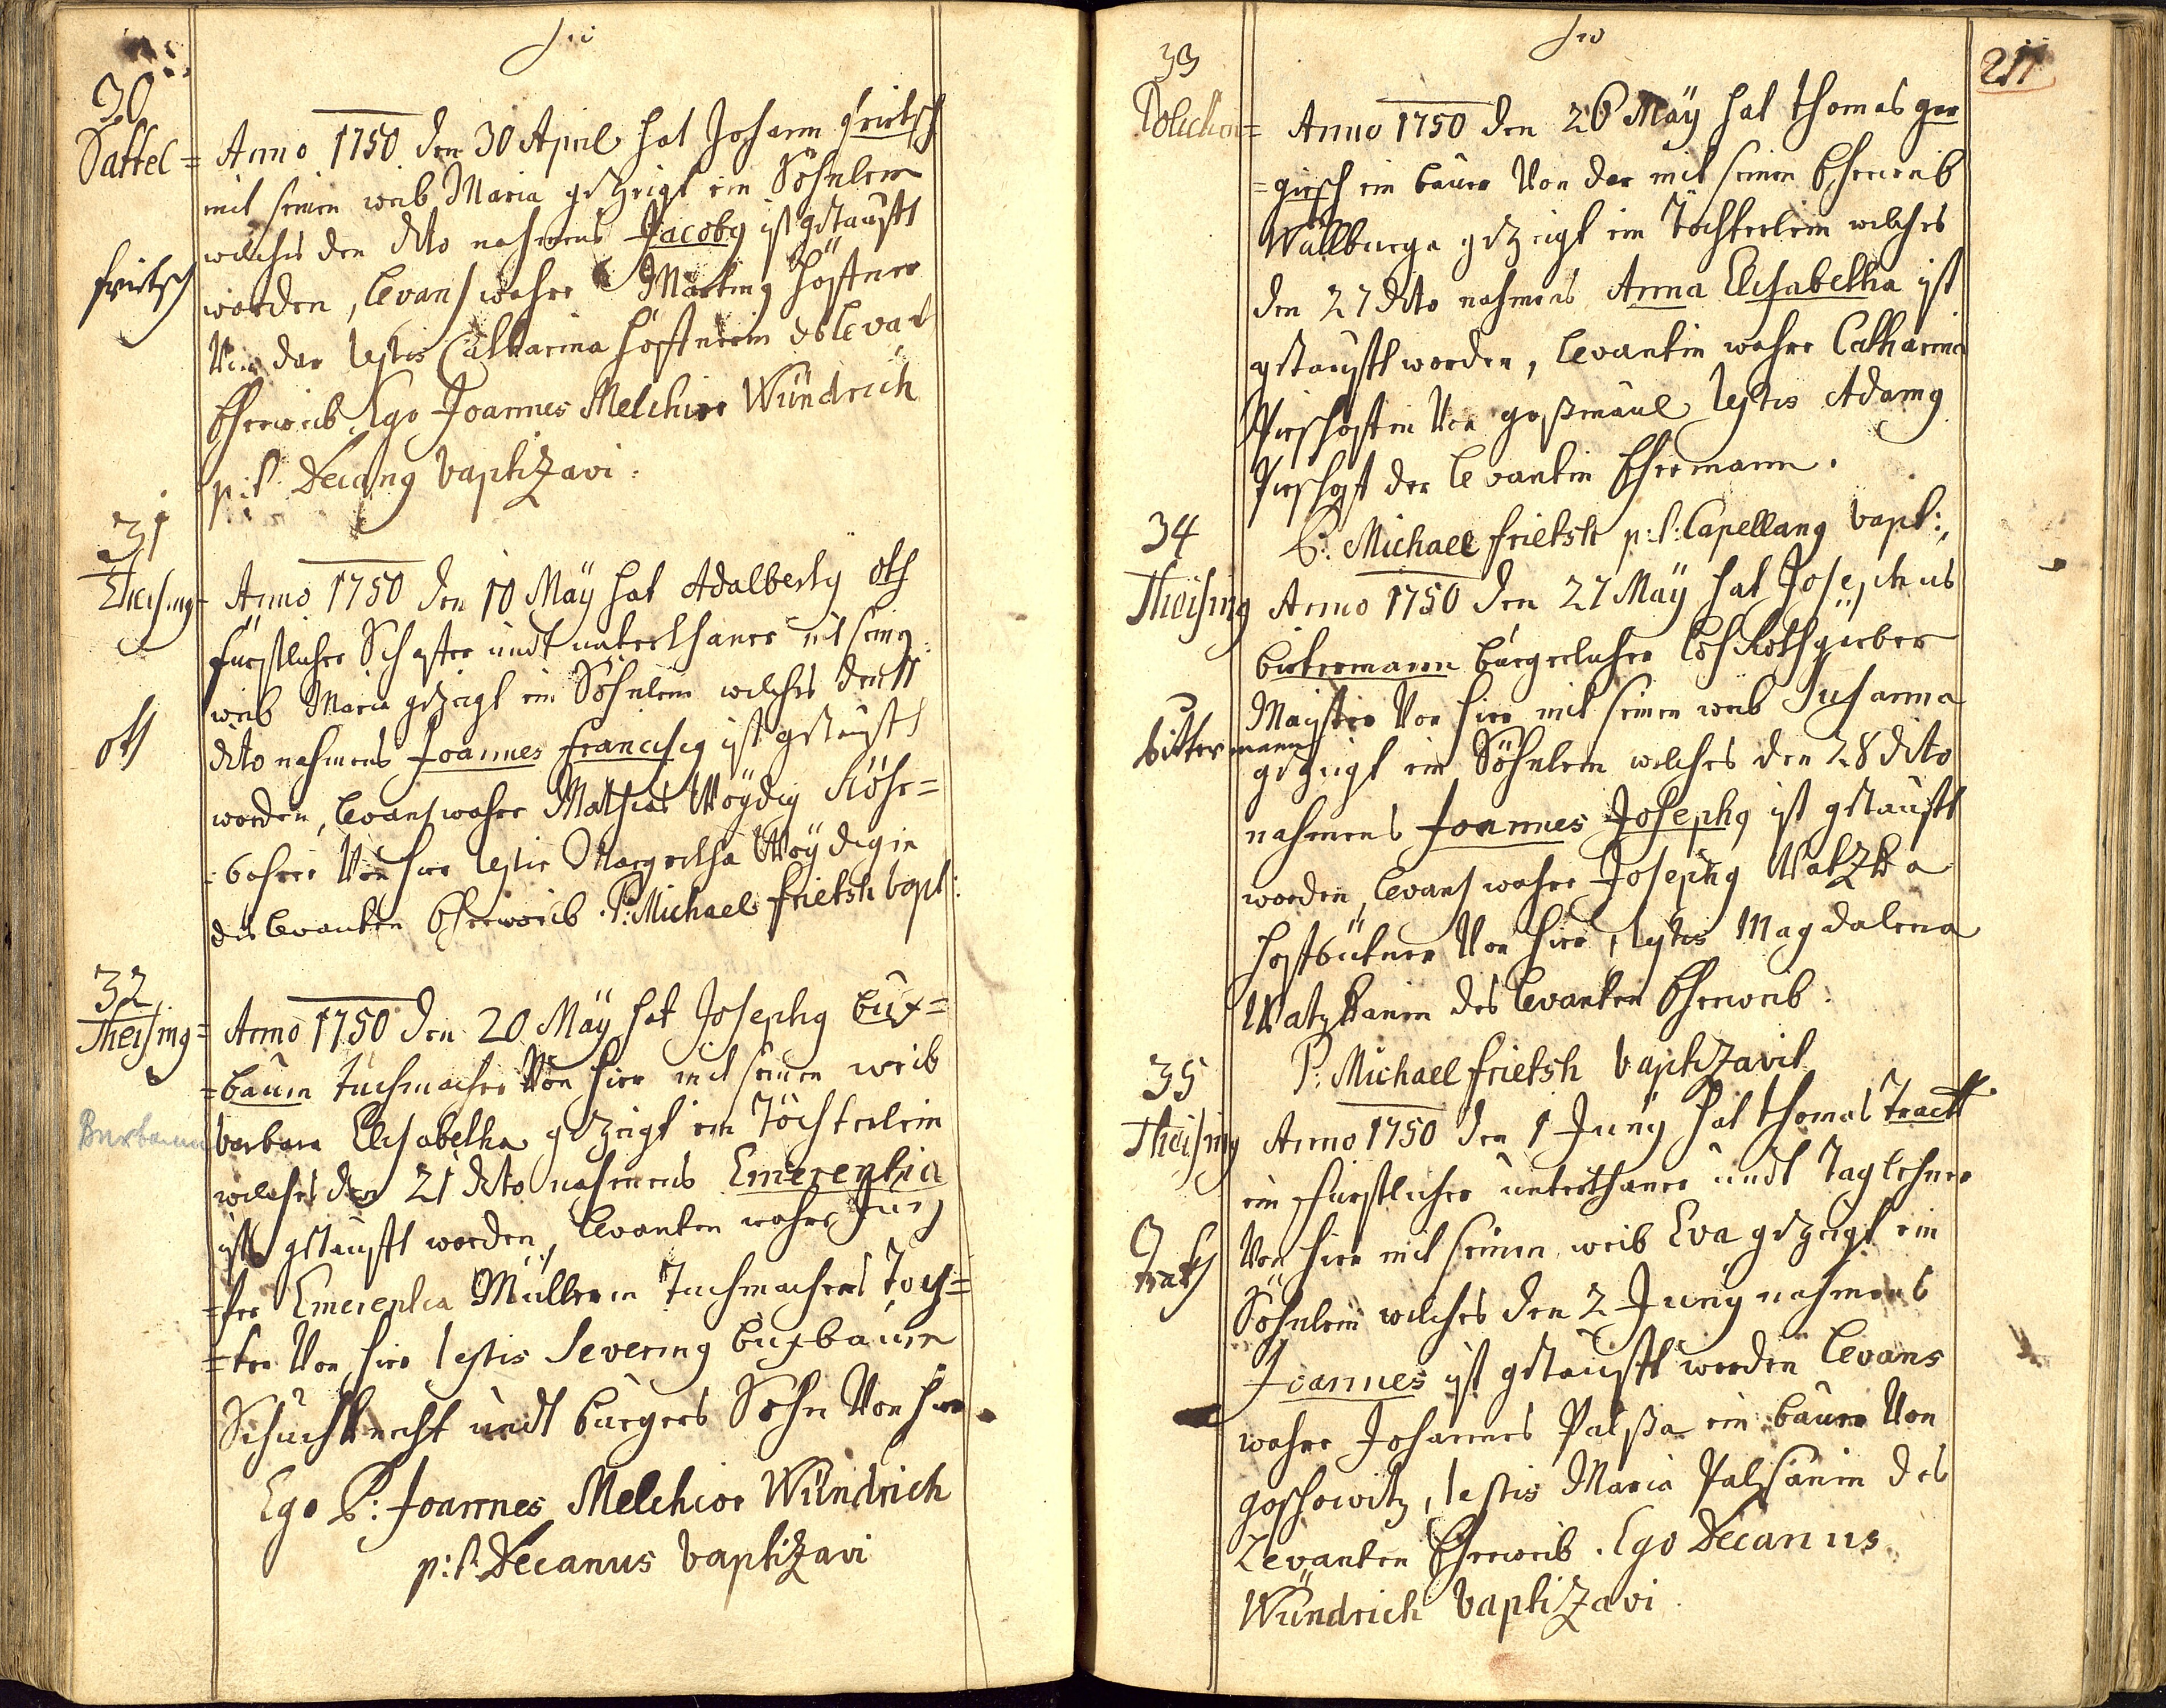 30
Sattel =
Anno 1750 den 30 April hat Johann frietsch
mit seinen weib Maria gezeigt ein Söhnlein
welches den dito nahmens Jacobg ist getaufft
frietsch
worden, levans wahre Marting Höffner
Von dar testis Catharina Höffnerin des levan
Eheweib. Ego Joannes Melchior Wündrich
p:t: Decang baptizavi.
31
Theising
Anno 1750 den 10 Maÿ hat Adalbertg Oth
fürstlicher Schaffer undt unterthaner mit seing
weib Maria gezeigt ein Söhnlein welches den 11
oth
dito nahmens Joannes Franciscg ist getaufft
worden, levans wahre Mathias Wöÿdig Röhr=
=bohrer Von hier testis Margretha Wöÿdigin
des levanten Eheweib. P: Michael frietsh bapt:
32
Theising =
Anno 1750 den 20 Maÿ hat Josephg Bux=
=baum tuchmacher Von hier mit seinen weib
Buxbaum
barbara Elisabetha gezeigt ein Töchterlein
welches den 21 dito nahmens Emerentia
ist getaufft worden, levantin wahre Jung
=fer Emerentia Müllerin Tuchmachers Toch=
=ter Von hier testis Severing Buxbaum
Schuchknecht undt burgers Sohn Von hier
Ego P: Joannes Melchior Wündrich
p:t: Decanus baptizavi
211
33
Anno 1750 den 26 Maÿ hat thomas ger
=girsch ein bauer Von dar mit seinen Eheweib
Wallburga gezeigt ein Töchterlein welches
den 27 dito nahmens Anna Elisabetha ist
getaufft worden, levantin wahre Catharina
Von testis Adamg
der levantin Ehemann.
P: Michael frietsh p:t: Capellang bapt:
34
Theising
Anno 1750 den 27 Maÿ hat Josephus
bittermann bürgerlicher Rothgerber
Maister Von hier mit seinen weib Susanna
bittermann
gezeigt ein Söhnlein welches den 28 dito
nahmens Joannes Josephg ist getaufft
worden, levans wahre Josephg Watzka
Von hier, testis Magdalena
Watzkanin des levanten Eheweib.
P: Michael frietsh baptizavit
35
Theising
Anno 1750 den 1 Junÿ hat thomas Tracth
ein fürstlicher unterthaner undt Taglehner
Von hier mit seinen weib Eva gezeigt ein
Trath
Söhnlein welches den 2 Junÿ nahmens
Joannes ist getaufft worden levans
wahre Johannes Palßa ein bauer Von
goschowitz, testis Maria Palsanin des
Levanten Eheweib. Ego Decanus
Wündrich baptizavi.